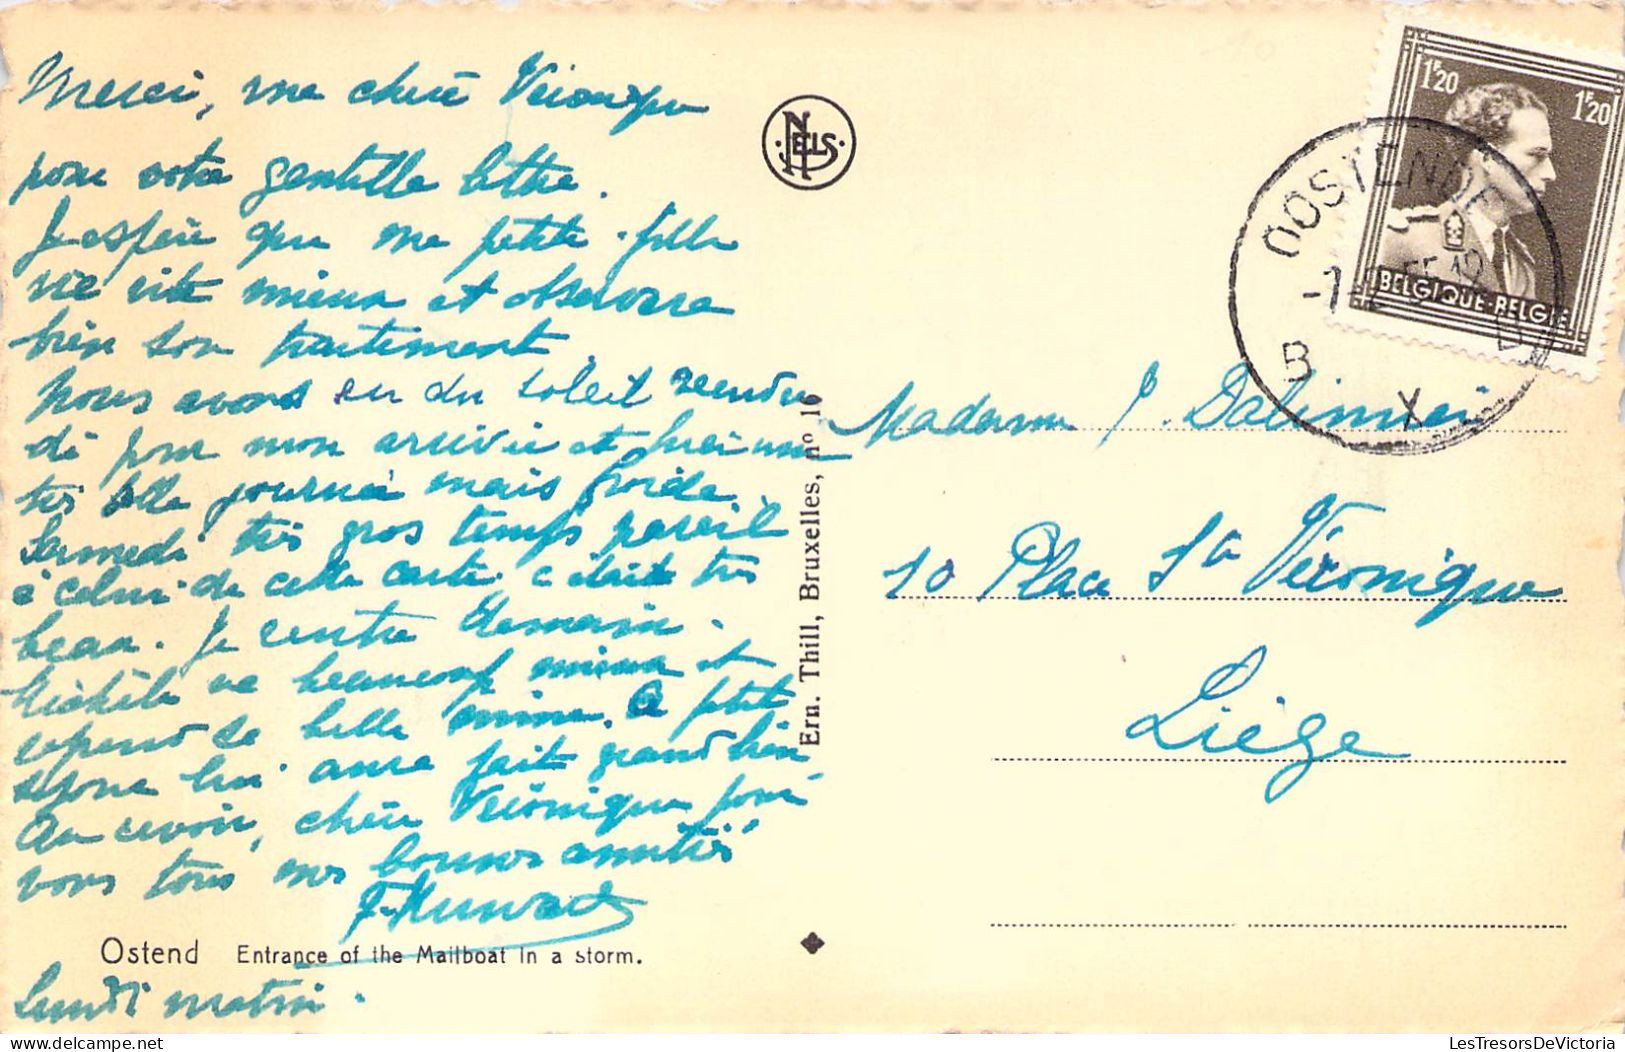 Merci, ma chère Véronique
pour votre gentille lettre.
J'espère que ma petite fille
va vite mieux et observera
bien son traitement
Nous avons eu du soleil vendre
di pour mon arrivée et hier une
très belle journée mais froide.
Samedi très gros temps pareil
à celui de cette carte. c'était très
beau. Je rentre demain.
va beaucoup mieux et
reprend sa belle mine. Ce petit
séjour lui aura fait grand bien
Au revoir, chère Véronique pour
vous tous nos bonnes amitiés
Ostend Entrance of the Mailboat in a storm.
Lundi matin.
NELS
Ern. Thill, Bruxelles, nº 16
1F20 1F20
BELGIQUE-BELGIE
OOSTENDE
-1
B X
Madame
10 Place Ste Véronique
Liège
LesTresorsDeVictoria